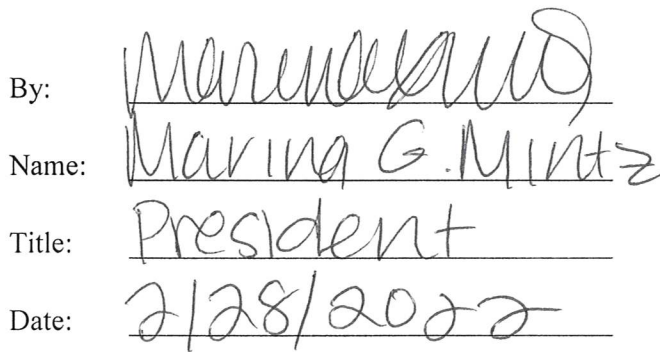 By:
Name: Marina G. Mintz
Title: President
Date: 2/28/2022